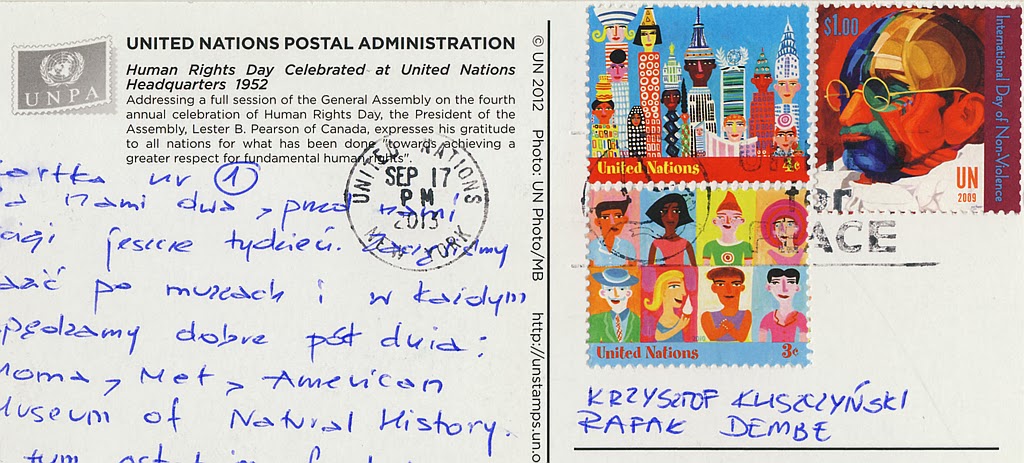 UNPA
UNITED NATIONS POSTAL ADMINISTRATION
Human Rights Day Celebrated at United Nations
Headquarters 1952
Addressing a full session of the General Assembly on the fourth
annual celebration of Human Rights Day, the President of the
Assembly, Lester B. Pearson of Canada, expresses his gratitude
to all nations for what has been done "towards achieving a
greater respect for fundamental human rights".
nr 1
nami dwa, przed nami
jeszcze tydzień.
po muzeach i w każdym
spędzamy dobre pół dnia:
Moma, Met, American
Museum of Natural History.
UNITED NATIONS
SEP 17
PM
2013
NEW YORK
© UN 2012 Photo: UN Photo/MB http://unstamps.un.o
United Nations 4¢
United Nations 3¢
$1.00
International Day of Non-Violence
UN
2009
for
PEACE
KRZYSZTOF KUSZCZYŃSKI
RAFAŁ DEMBE